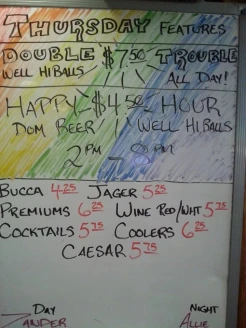 THURSDAY FEATURES
DOUBLE $7.50 TROUBLE
WELL HIBALLS ALL DAY!
HAPPY $4.50 HOUR
DOM BEER / WELL HIBALLS
2PM - 8PM
BUCCA 4.25 JAGER 5.25
PREMIUMS 6.25 WINE RED/WHT 5.75
COCKTAILS 5.75 COOLERS 6.25
CAESAR 5.75
DAY NIGHT
XANDER ALLIE